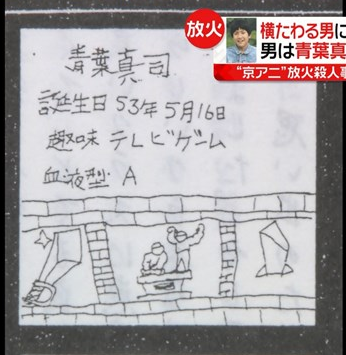 放火
横たわる男に
男は青葉真
“京アニ”放火殺人事
青葉真司
誕生日 53年5月16日
趣味 テレビゲーム
血液型 A